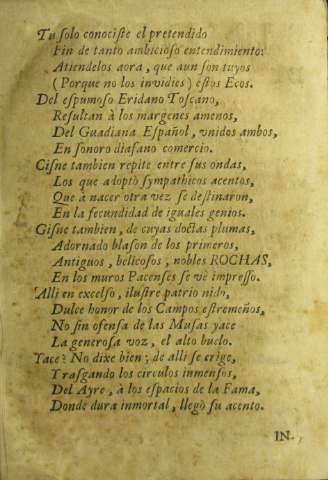 Tu solo conociſte el pretendido
Fin de tanto ambicioſo entendimiento:
Atiendelos aora, que aun ſon tuyos
(Porque no los invidies) eſtos Ecos.
Del eſpumoſo Eridano Toſcano,
Reſultan à los margenes amenos,
Del Guadiana Eſpañol, vnidos ambos,
En ſonoro diafano comercio.
Ciſne tambien repite entre ſus ondas,
Los que adoptò ſympathicos acentos,
Que à nacer otra vez ſe deſtinaron,
En la fecundidad de iguales genios.
Ciſne tambien, de cuyas doctas plumas,
Adornado blaſon de los primeros,
Antiguos, belicoſos, nobles ROCHAS,
En los muros Pacenſes ſe vè impreſſo.
Alli en excelſo, iluſtre patrio nido,
Dulce honor de los Campos eſtremeños,
No ſin ofenſa de las Muſas yace
La generoſa voz, el alto buelo.
Yace? No dixe bien; de alli ſe erige,
Traſgando los circulos inmenſos,
Del Ayre, à los eſpacios de la Fama,
Donde dura inmortal, llegò ſu acento.
IN-